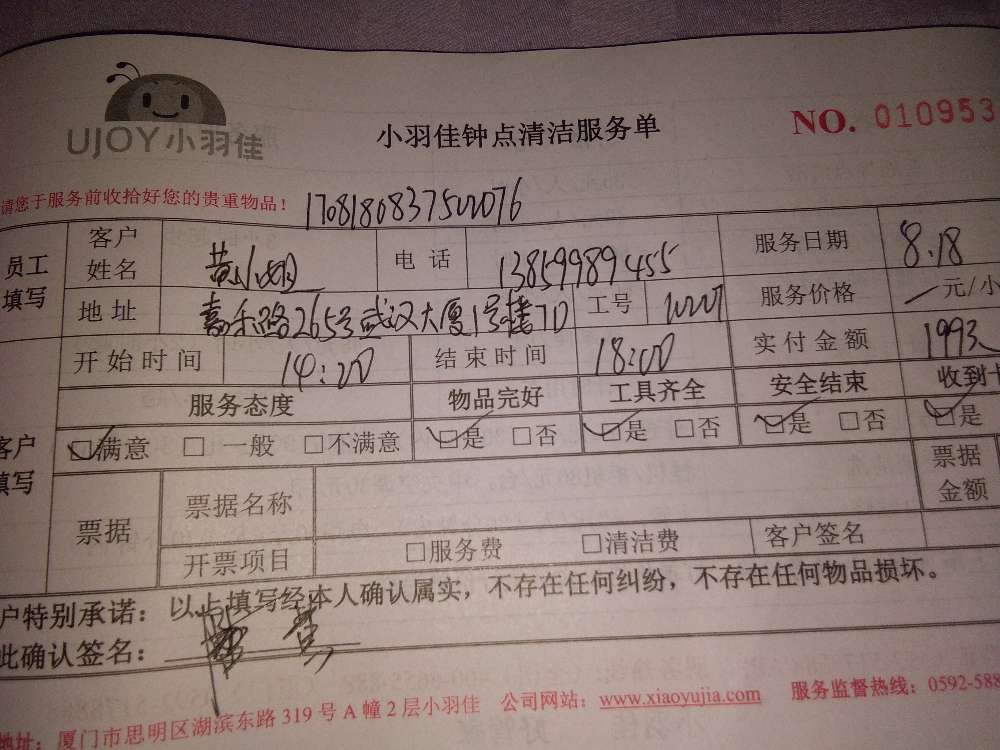 UJOY小羽佳
小羽佳钟点清洁服务单
NO. 010953
请您于服务前收拾好您的贵重物品!
员工填写 客户姓名 黄小姐 电话 13859989455 服务日期 8.18
地址 嘉禾路265号武汉大厦1号楼7D 工号 服务价格 元/小
开始时间 14:00 结束时间 18:00 实付金额 1993
服务态度 物品完好 工具齐全 安全结束 收到
客户填写 ☑满意 □一般 □不满意 ☑是 □否 ☑是 □否 ☑是 □否 ☑是
票据 票据名称 票据金额
开票项目 □服务费 □清洁费 客户签名
户特别承诺：以上填写经本人确认属实，不存在任何纠纷，不存在任何物品损坏。
此确认签名：
地址：厦门市思明区湖滨东路319号A幢2层小羽佳 公司网站：www.xiaoyujia.com 服务监督热线：0592-588